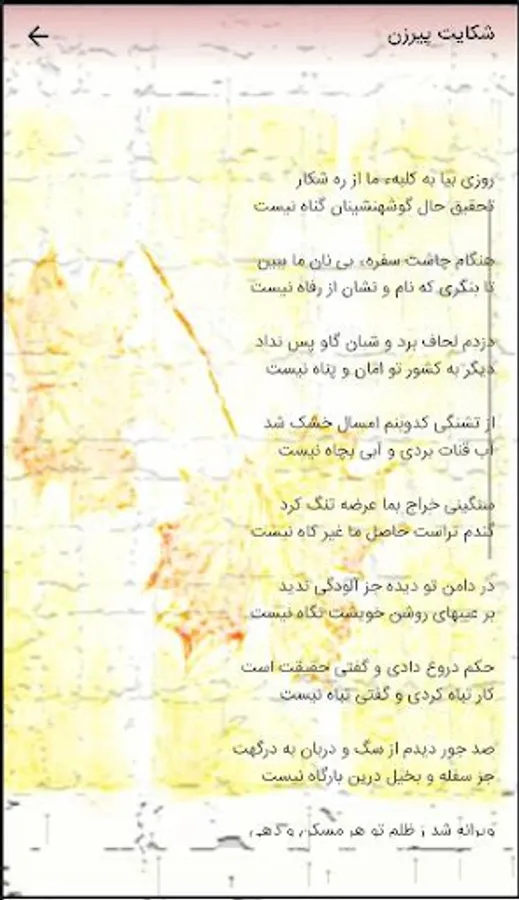 شکایت پیرزن
روزی بیا به کلبهء ما از ره شکار
تحقیق حال گوشهنشینان گناه نیست
هنگام چاشت سفره، بی نان ما ببین
تا بنگری که نام و نشان از رفاه نیست
دزدم لحاف برد و شبان گاو پس نداد
دیگر به کشور تو امان و پناه نیست
از تشنگی کدوبنم امسال خشک شد
آب قنات بردی و آبی بچاه نیست
سنگینی خراج بما عرضه تنگ کرد
گندم تراست حاصل ما غیر کاه نیست
در دامن تو دیده جز آلودگی ندید
بر عیبهای روشن خویشت نگاه نیست
حکم دروغ دادی و گفتی حقیقت است
کار تباه کردی و گفتی تباه نیست
صد جور دیدم از سگ و دربان به درگهت
جز سفله و بخیل درین بارگاه نیست
ویرانه شد ز ظلم تو هر مسکن و دهی